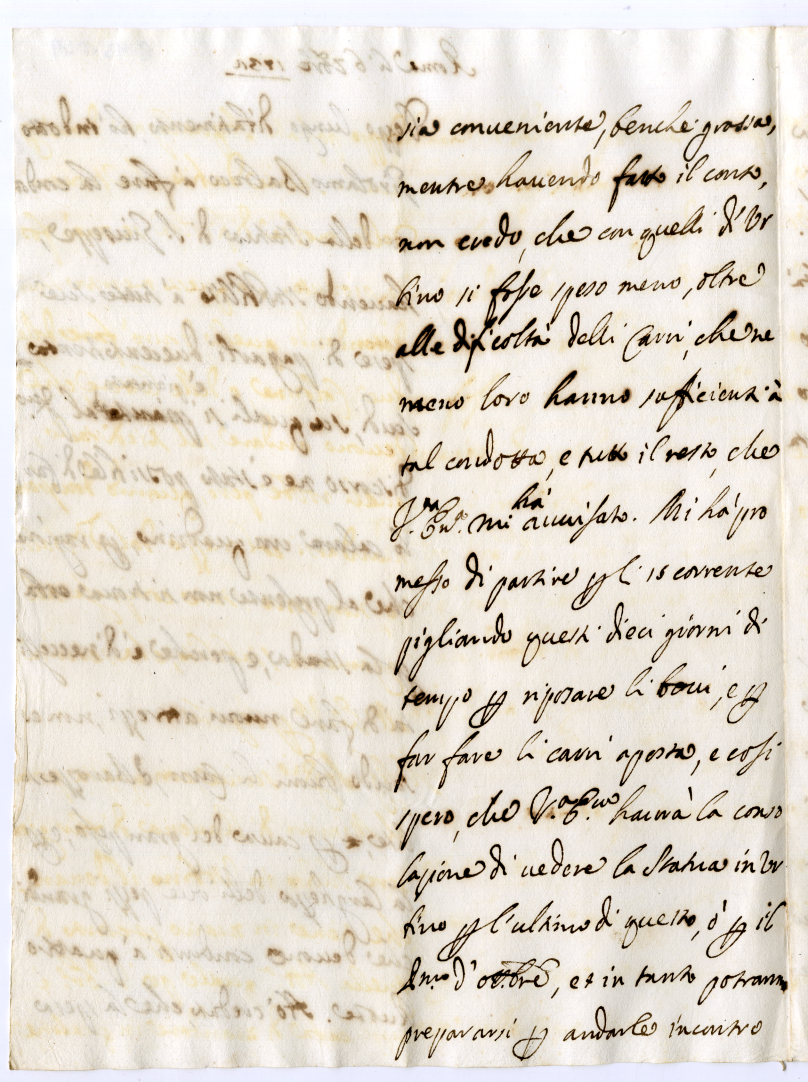 sia conveniente, benche grossa,
mentre havendo fatto il conto,
non credo, che con quelli d'Ur
bino si fosse speso meno, oltre
alle dificoltà delli Carri, che ne
meno loro hanno sufficienti à
tal condotta, e tutto il resto, che
V.ra Em.a mi hà avvisato. Mi hà pro
messo di partire p li 15 corrente
pigliando questi dieci giorni di
tempo p riposare li bovi, e p
far fare li carri aposta, e così
spero, che V.a E.za haverà la conso
lazione di vedere la Statua in Ur
bino p l'ultimo di questo, ò p il
P.mo d'ottbre, et in tanto potranno
prepararsi p andarle incontro